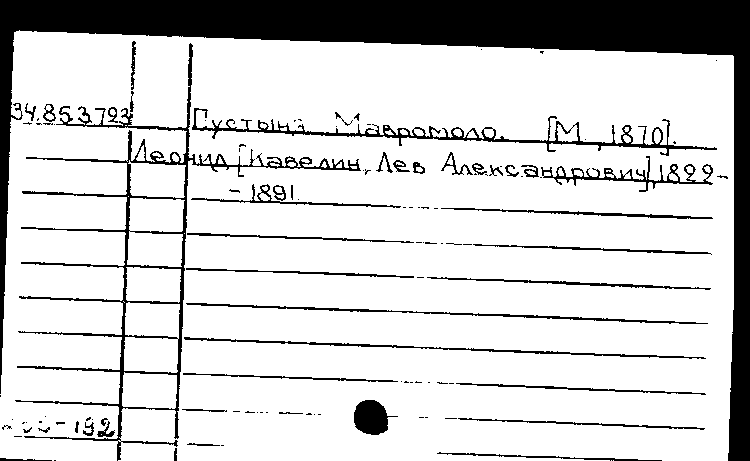 34.853.793 Пустынь Мавромоло. [М., 1870].
Леонид [Кавелин, Лев Александрович], 1822-
-1891
-192